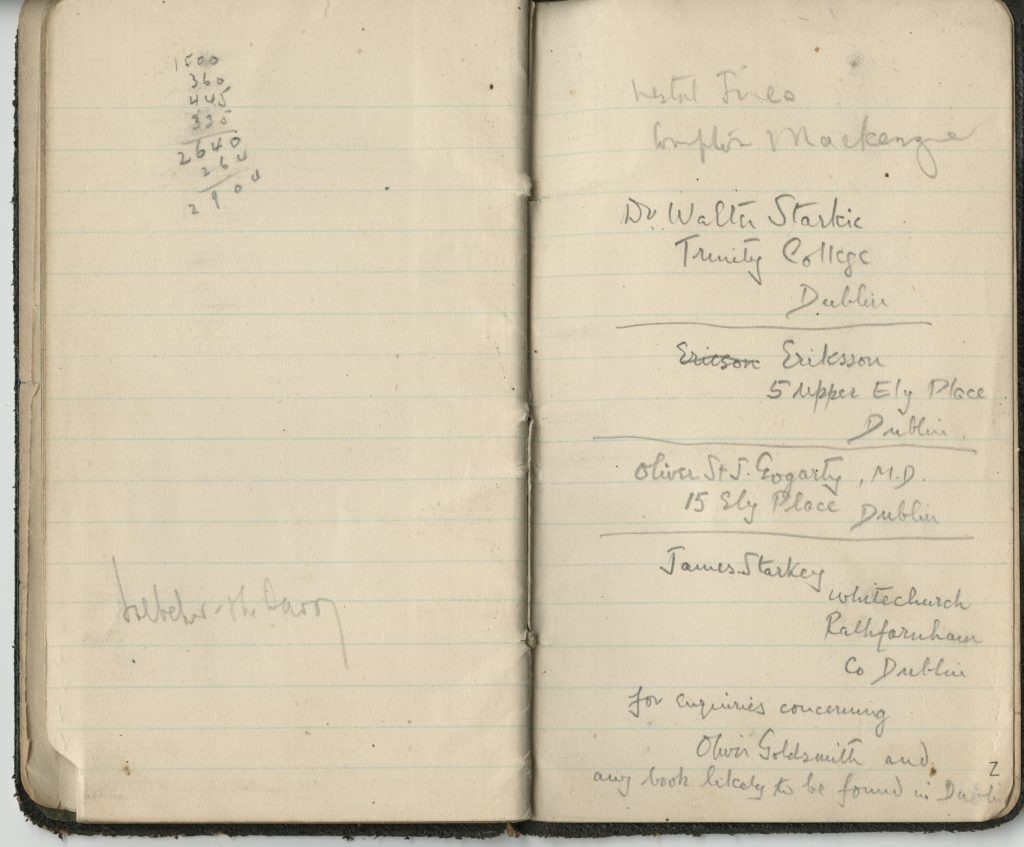 1500
360
445
330
2640
260
2900
Vestal Fires
Compton Mackenzie
Dr. Walter Starkie
Trinity College
Dublin
Ericson Eriksson
5 Upper Ely Place
Dublin.
Oliver St J. Gogarty, M.D.
15 Ely Place Dublin
James Starkey
Whitechurch
Rathfarnham
Co Dublin
for enquiries concerning
Oliver Goldsmith and
any book likely to be found in Dublin
2